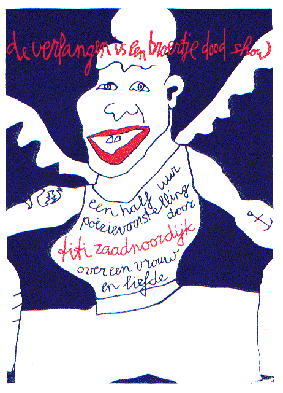 de verlangen is een broertje dood show
een half uur
poëzievoorstelling
door
fifi zaadnoordijk
over een vrouw
en liefde